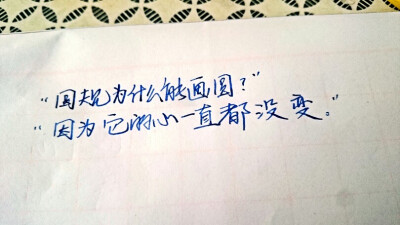 “圆规为什么能画圆？”
“因为它的心一直都没变。”